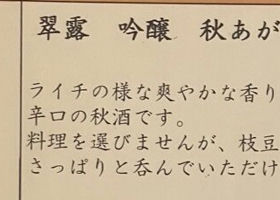 翠露　吟醸　秋あが
ライチの様な爽やかな香り
辛口の秋酒です。
料理を選びませんが、枝豆
さっぱりと呑んでいただけ